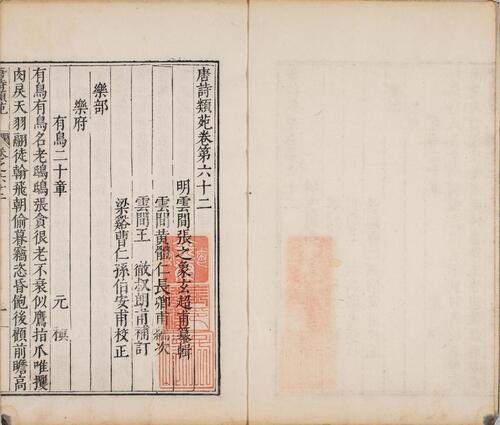 唐詩類苑卷第六十二
明雲間張之象玄超甫纂輯
雲間黃體仁長卿甫編次
雲間王徹叔朗甫補訂
梁谿曹仁孫伯安甫校正
樂部
樂府
有鳥二十章 元稹
有鳥有鳥名老鴟鴟張貪很老不衰似鷹指爪唯攫
肉戾天羽翮徒翰飛朝偷暮竊恣昏飽後顧前瞻高
唐詩類苑 卷之六十二 一